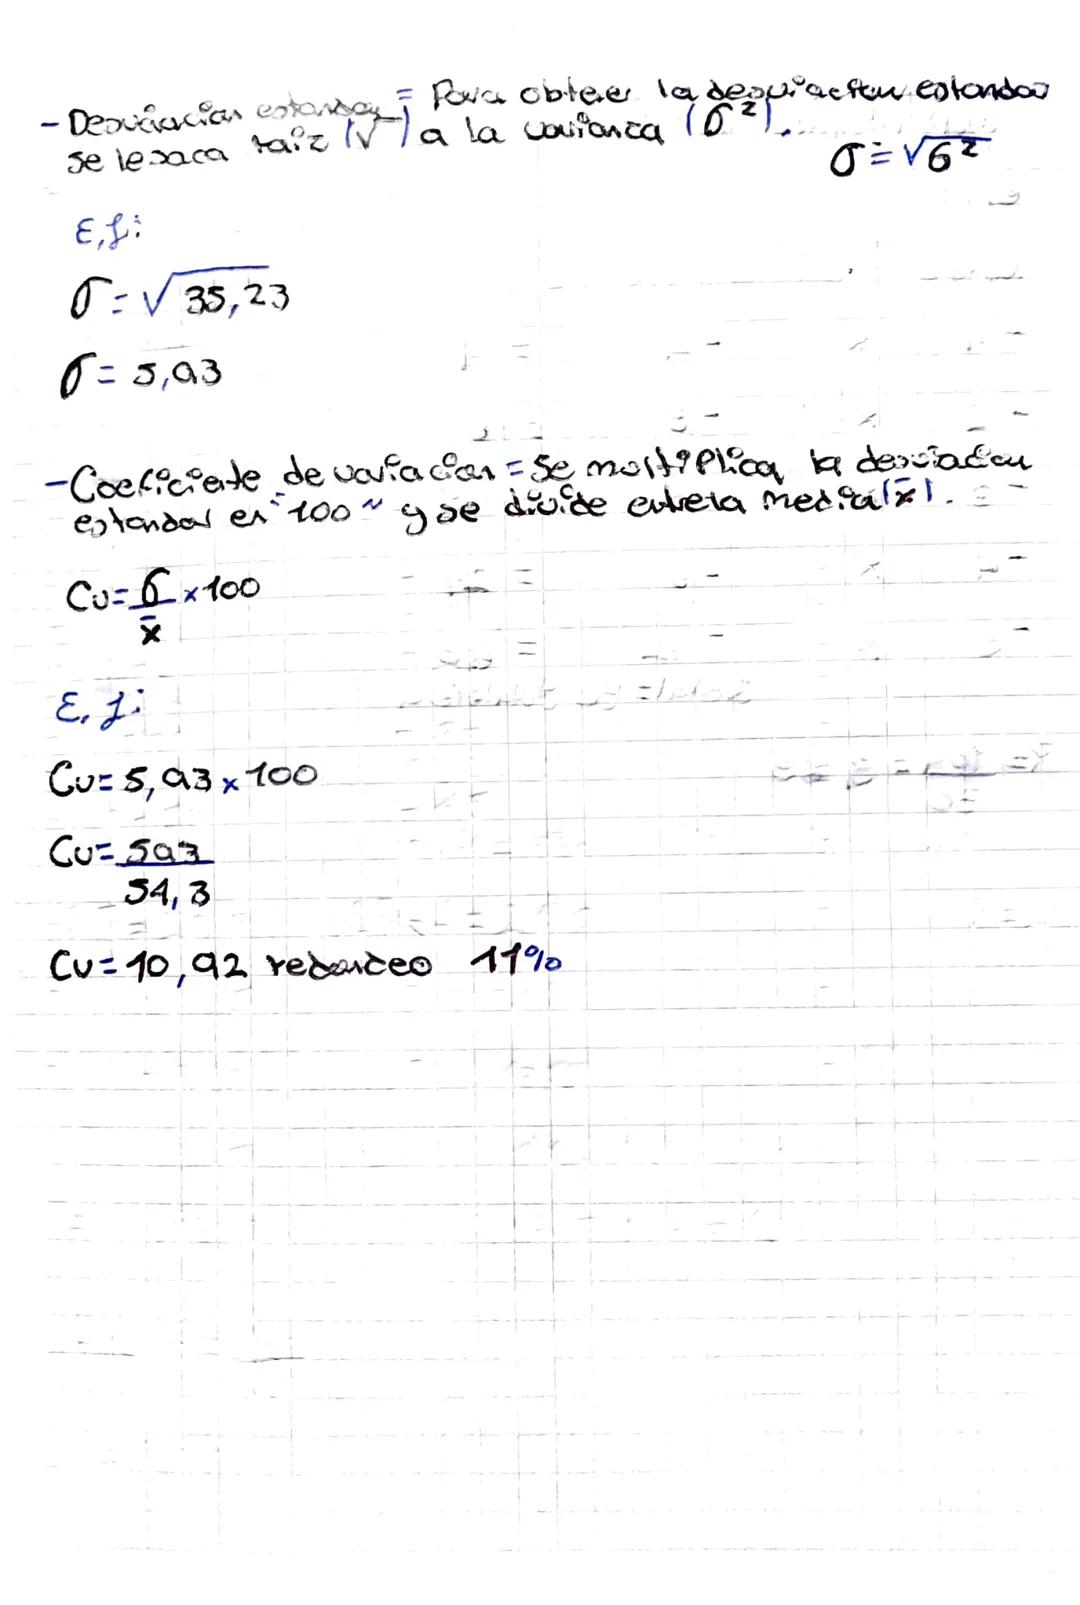 - Desviación estandar = Para obtener la desviación estandar
se le saca raíz (√ ) a la varianza (σ²).
σ = √σ²
E,J:
σ = √35,23
σ = 5,93
- Coeficiente de variación = Se multiplica la desviación
estandar en "100" y se divide entre la media (x̄).
Cv = σ x 100
x̄
E,J:
Cv = 5,93 x 100
Cv = 593
54,3
Cv = 10,92 redondeo 11%